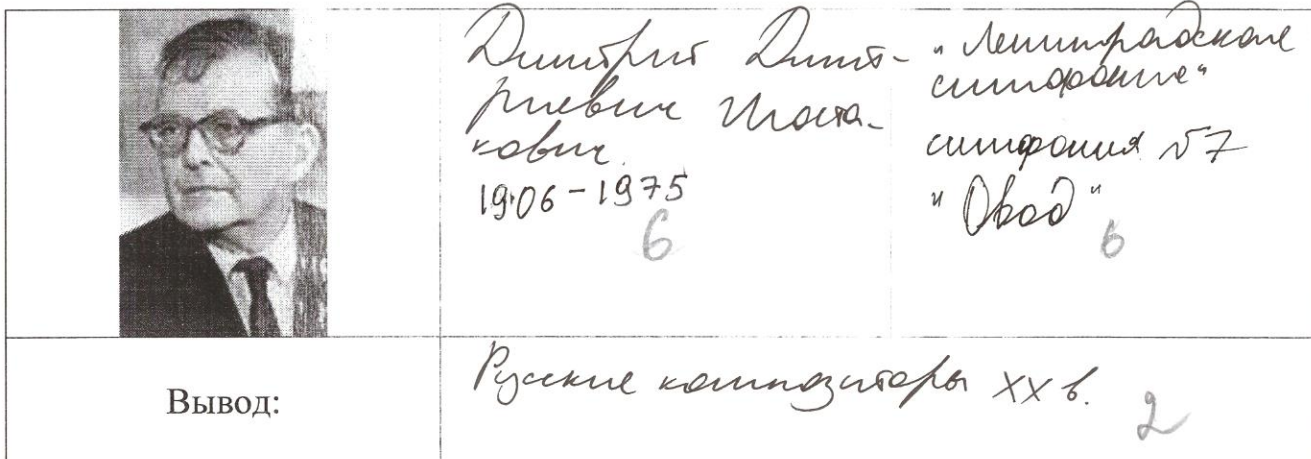 Дмитрий Дмит-
риевич Шоста-
кович.
1906-1975
6
"Ленинградская
симфония"
симфония №7
"Овод"
6
Вывод:
Русские композиторы XX в.
2